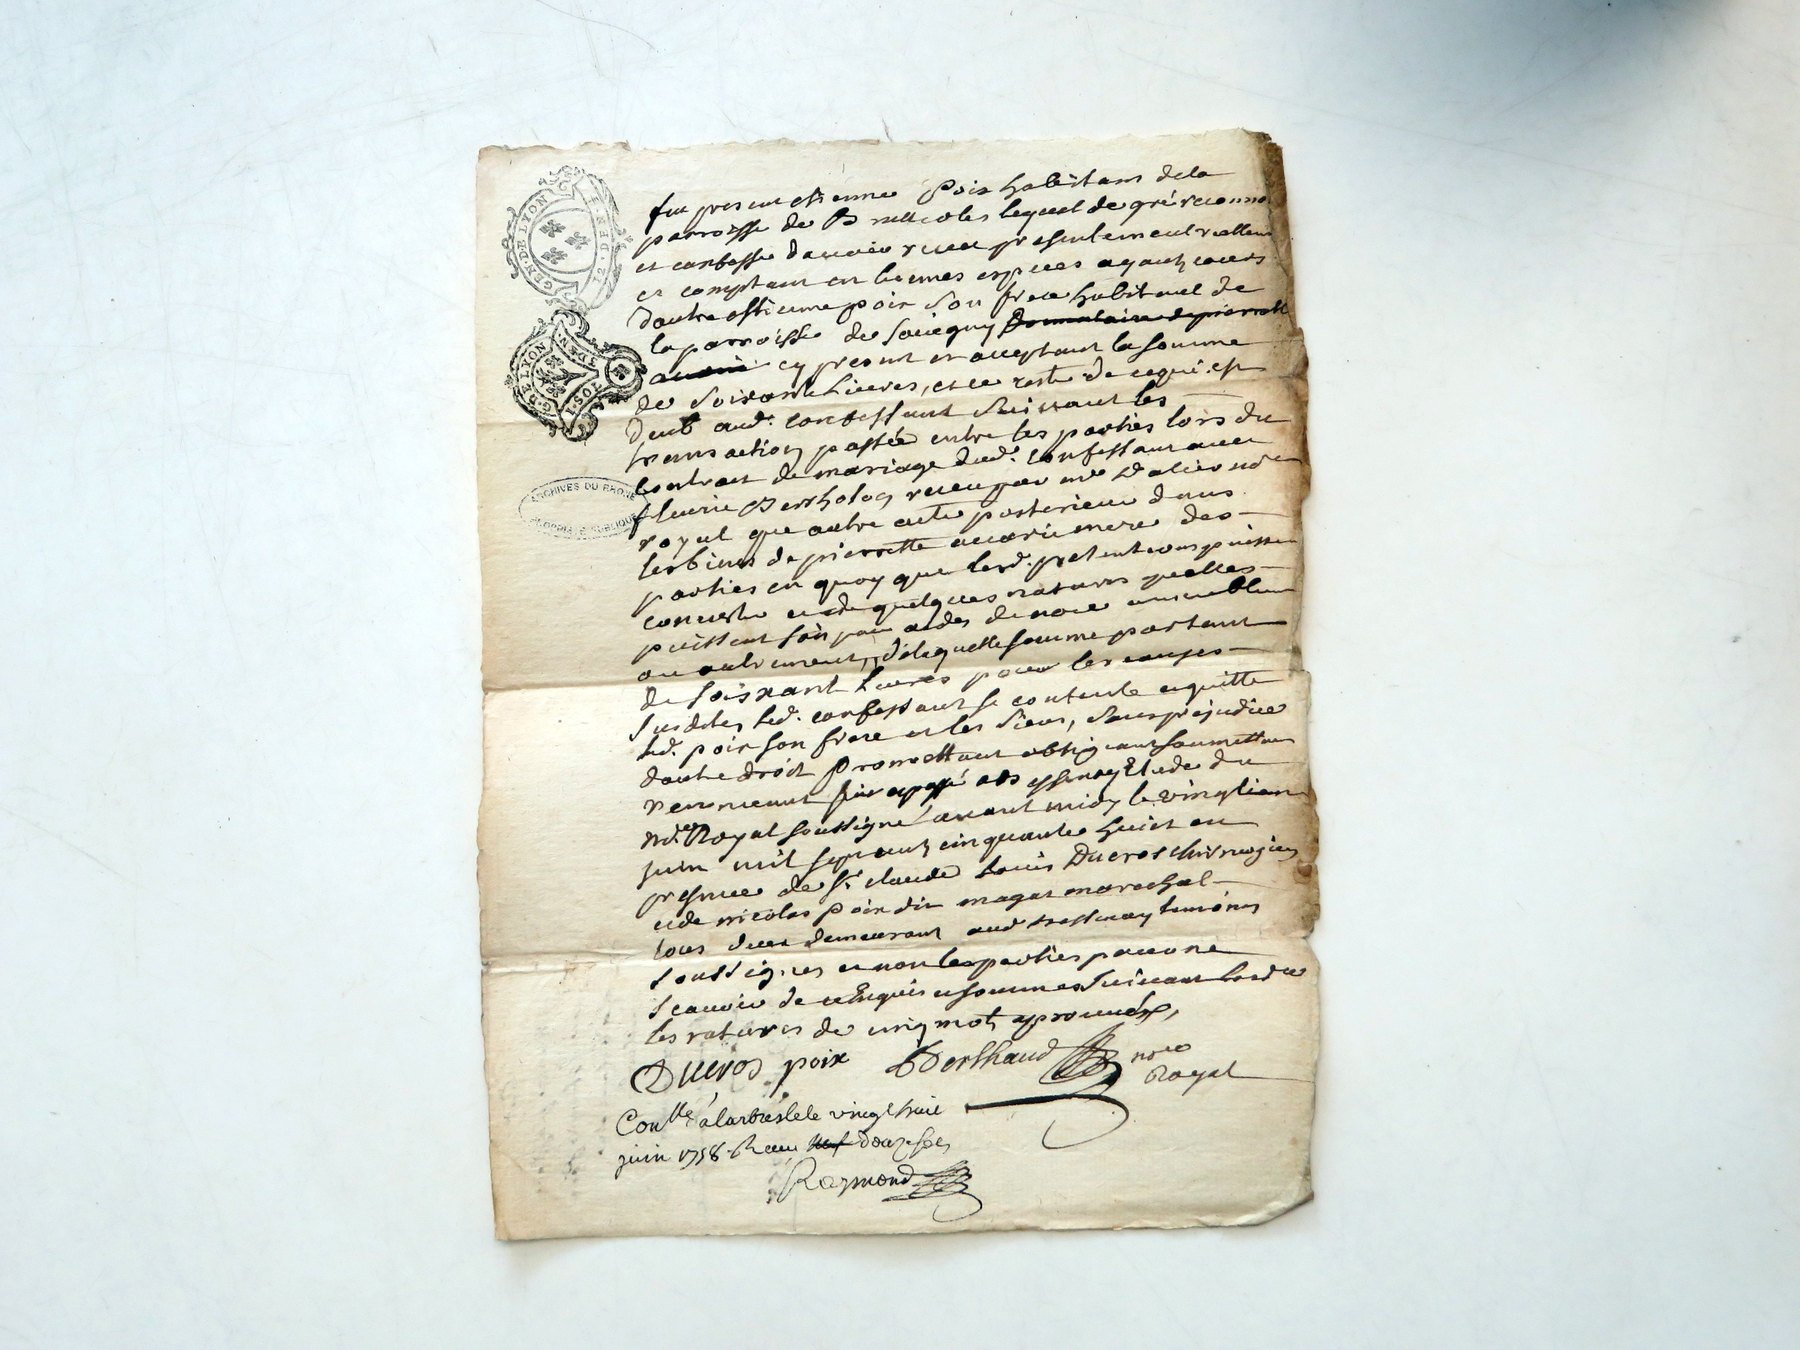 GEN. DE LYON
fut present etienne poix habitant dela
parroisse de lequel de gré reconno
et confesse davoir receu presentement reellem
et comptant en bonnes especes ayant cours
dautre estienne poix son frere habitant de
la parroisse de Savigny donnataire de pierrette
cy present et acceptant la somme
de soixante Livres, et ce reste de ce qui est
deub aud. confessant suivant les
transaction passée entre les parties lors du
contract de mariage dud. confessant avec
fleurie Bertholog receu par me
royal que autre acte posterieur dans
les biens de pierrette mere des
parties en quoy que lesd. pretentions puissent
consister et de quelques natures quelles
puissent
ou autrement, delaquelle somme portant
de soixant Livres pour les causes
susdites led. confessant se contente et quitte
led. poix son frere et les siens, sans prejudice
dautre droit promettant obligeant soumettant
renonceant fait et passé Etude du
no.re Royal soussigné avant midy le vingt
juin mil sept cent cinquante huict en
presence de Sr. claude Louis Ducros chirurgien
et de nicolas poix dit magat marechal
tous deux demeurant temoins
soussignes et non les parties pour ne
scavoir de ce enquis et sommes suivant lord.ce
les ratures de cinq mots aprouvées,
Ducros poix Berthaud no.re
Royal
Conllé à larbresle le vingt huit
juin 1758. Receu neuf douze sols
Raymond
G. DE LYON
ARCHIVES DU RHONE